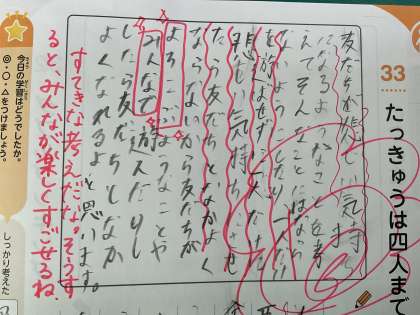 33
たっきゅうは四人まで
友だちが悲しい気持ち
になるようなことを考
えてそんなことは
ないようにしたり一人だけ
を遊ばせずに一人だけ
悪い気持ちに
たら友だちとなかよく
ならないから友だちが
よろこぶようなことや
みんなで遊んだりし
したら友だちとなか
よくなれるよと思います。
すてきな考えだな。そうす
ると、みんなが楽しくすごせるね。
今日の学習はどうでしたか。
◎・○・△をつけましょう。
しっかり考えた